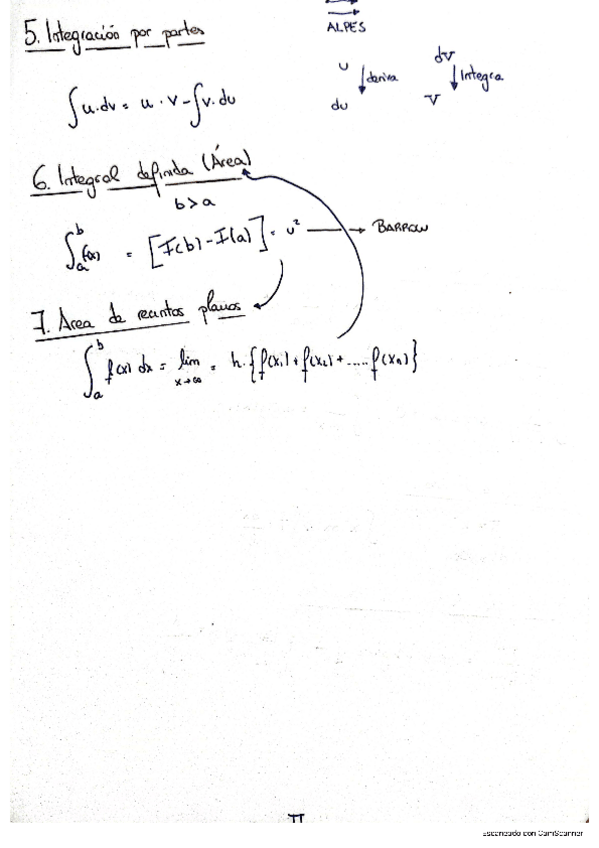 5. Integración por partes
ALPES
u
deriva
du
dv
Integra
v
∫u·dv = u · v - ∫v·du
6. Integral definida (Área)
b > a
∫ₐᵇ f(x) = [F(b) - F(a)] = u² → BARROW
7. Area de recintos planos
∫ₐᵇ f(x) dx = lim x→∞ = h·{f(x₁) + f(x₂) + ..... f(xₙ)}
II
Escaneado con CamScanner